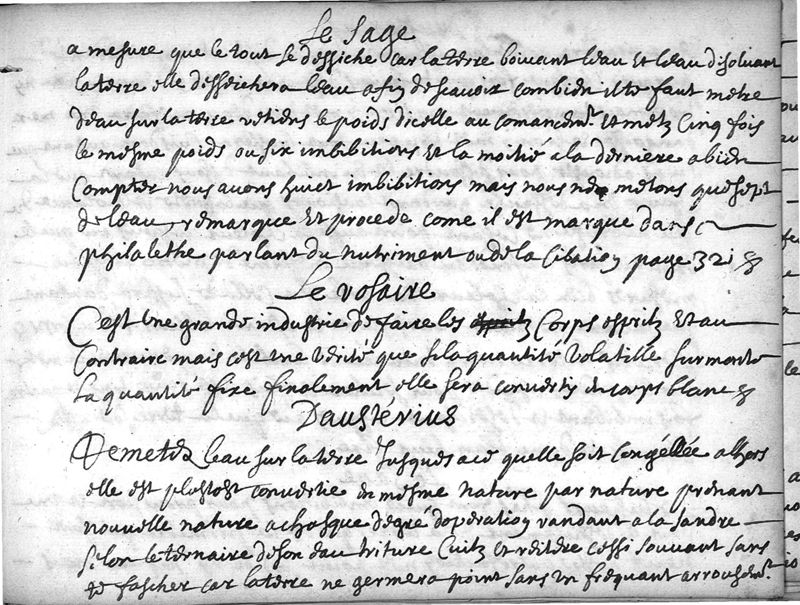 Le Sage
a mesure que le tout se dessiche car la terre boivant leau et leau disoluant
la terre elle desseichera leau afin de scauoir combien il te faut metre
deau sur la terre retiens le poids dicelle au comancemt. et metz cinq fois
le mesme poids ou six imbibitions et la moitié a la derniere a bien
compter nous auons huict imbibitions mais nous ne metons que sept
de leau, remarque et procede come il est marque dans
philalethe parlant du nutriment ou de la Cibation page 321
Le Rosaire
Cest une grande industrie de faire les corps espritz et au
Contraire mais cest une verité que si la quantité volatille surmonte
la quantité fixe finalement elle sera conuertis en corps blanc
Daustérius
Remetes leau sur la terre Jusques a ce quelle soit congéllée alhors
elle est plustost conuertie en mesme nature par nature prenant
nouuelle nature a chasque degré doperation randant a la sandre
selon le ternaire de son eau triture cuitz et reitere cessi souuant sans
te fascher car la terre ne germera point sans un frequant arrousemt.